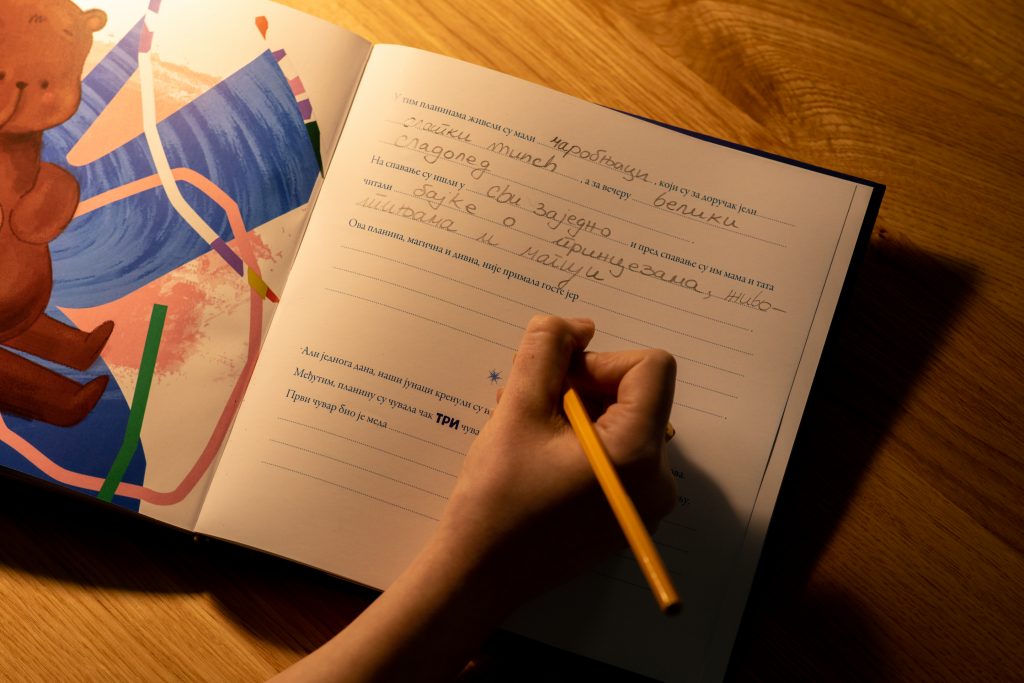 У тим планинама живели су мали чаробњаци, који су за доручак јели
слатки munch, а за вечеру велики
сладолед.
На спавање су ишли у сви заједно и пред спавање су им мама и тата
читали бајке о принцезама, живо-
тињама и машти.
Ова планина, магична и дивна, није примала госте јер
Али једнога дана, наши јунаци кренули су и
Међутим, планину су чувала чак ТРИ чува
Први чувар био је меда